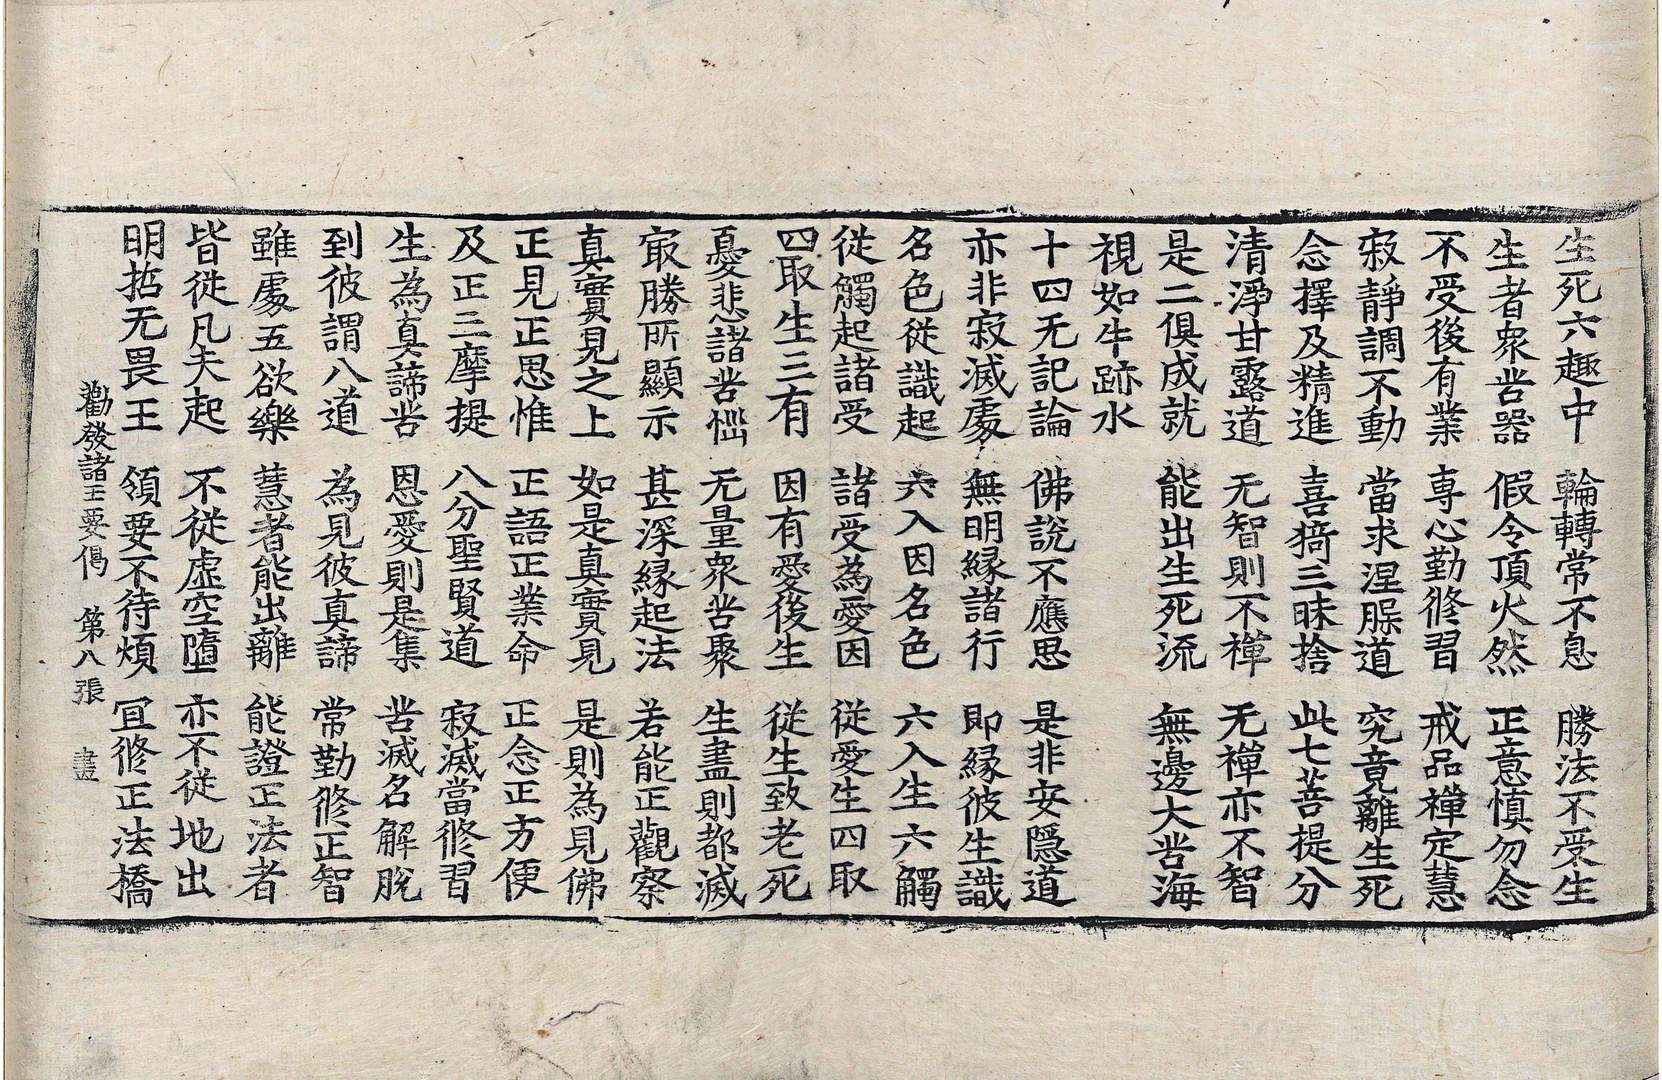 生死六趣中　輪轉常不息　勝法不受生
生者衆苦器　假令頂火然　正意慎勿念
不受後有業　専心勤修習　戒品禪定慧
寂靜調不動　當求涅槃道　究竟離生死
念擇及精進　喜猗三昧捨　此七菩提分
清淨甘露道　无智則不禪　无禪亦不智
是二俱成就　能出生死流　無邊大苦海
視如牛跡水
十四无記論　佛說不應思　是非安隱道
亦非寂滅處　無明縁諸行　即縁彼生識
名色從識起　六入因名色　六入生六觸
從觸起諸受　諸受為愛因　從愛生四取
四取生三有　因有愛後生　從生致老死
憂悲諸苦惱　无量衆苦聚　生盡則都滅
㝡勝所顯示　甚深縁起法　若能正觀察
真實見之上　如是真實見　是則為見佛
正見正思惟　正語正業命　正念正方便
及正三摩提　八分聖賢道　寂滅當修習
生為真諦苦　恩愛則是集　苦滅名解脫
到彼謂八道　為見彼真諦　常勤修正智
雖處五欲樂　慧者能出離　能證正法者
皆從凡夫起　不從虚空墮　亦不從地出
明哲无畏王　領要不待煩　冝修正法橋
勸發諸王要偈　第八張　盡